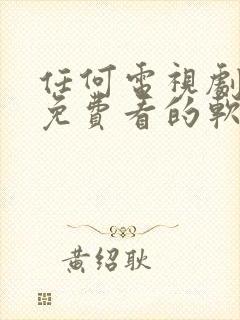 任何電視劇
免費看的軟
黃紹耿